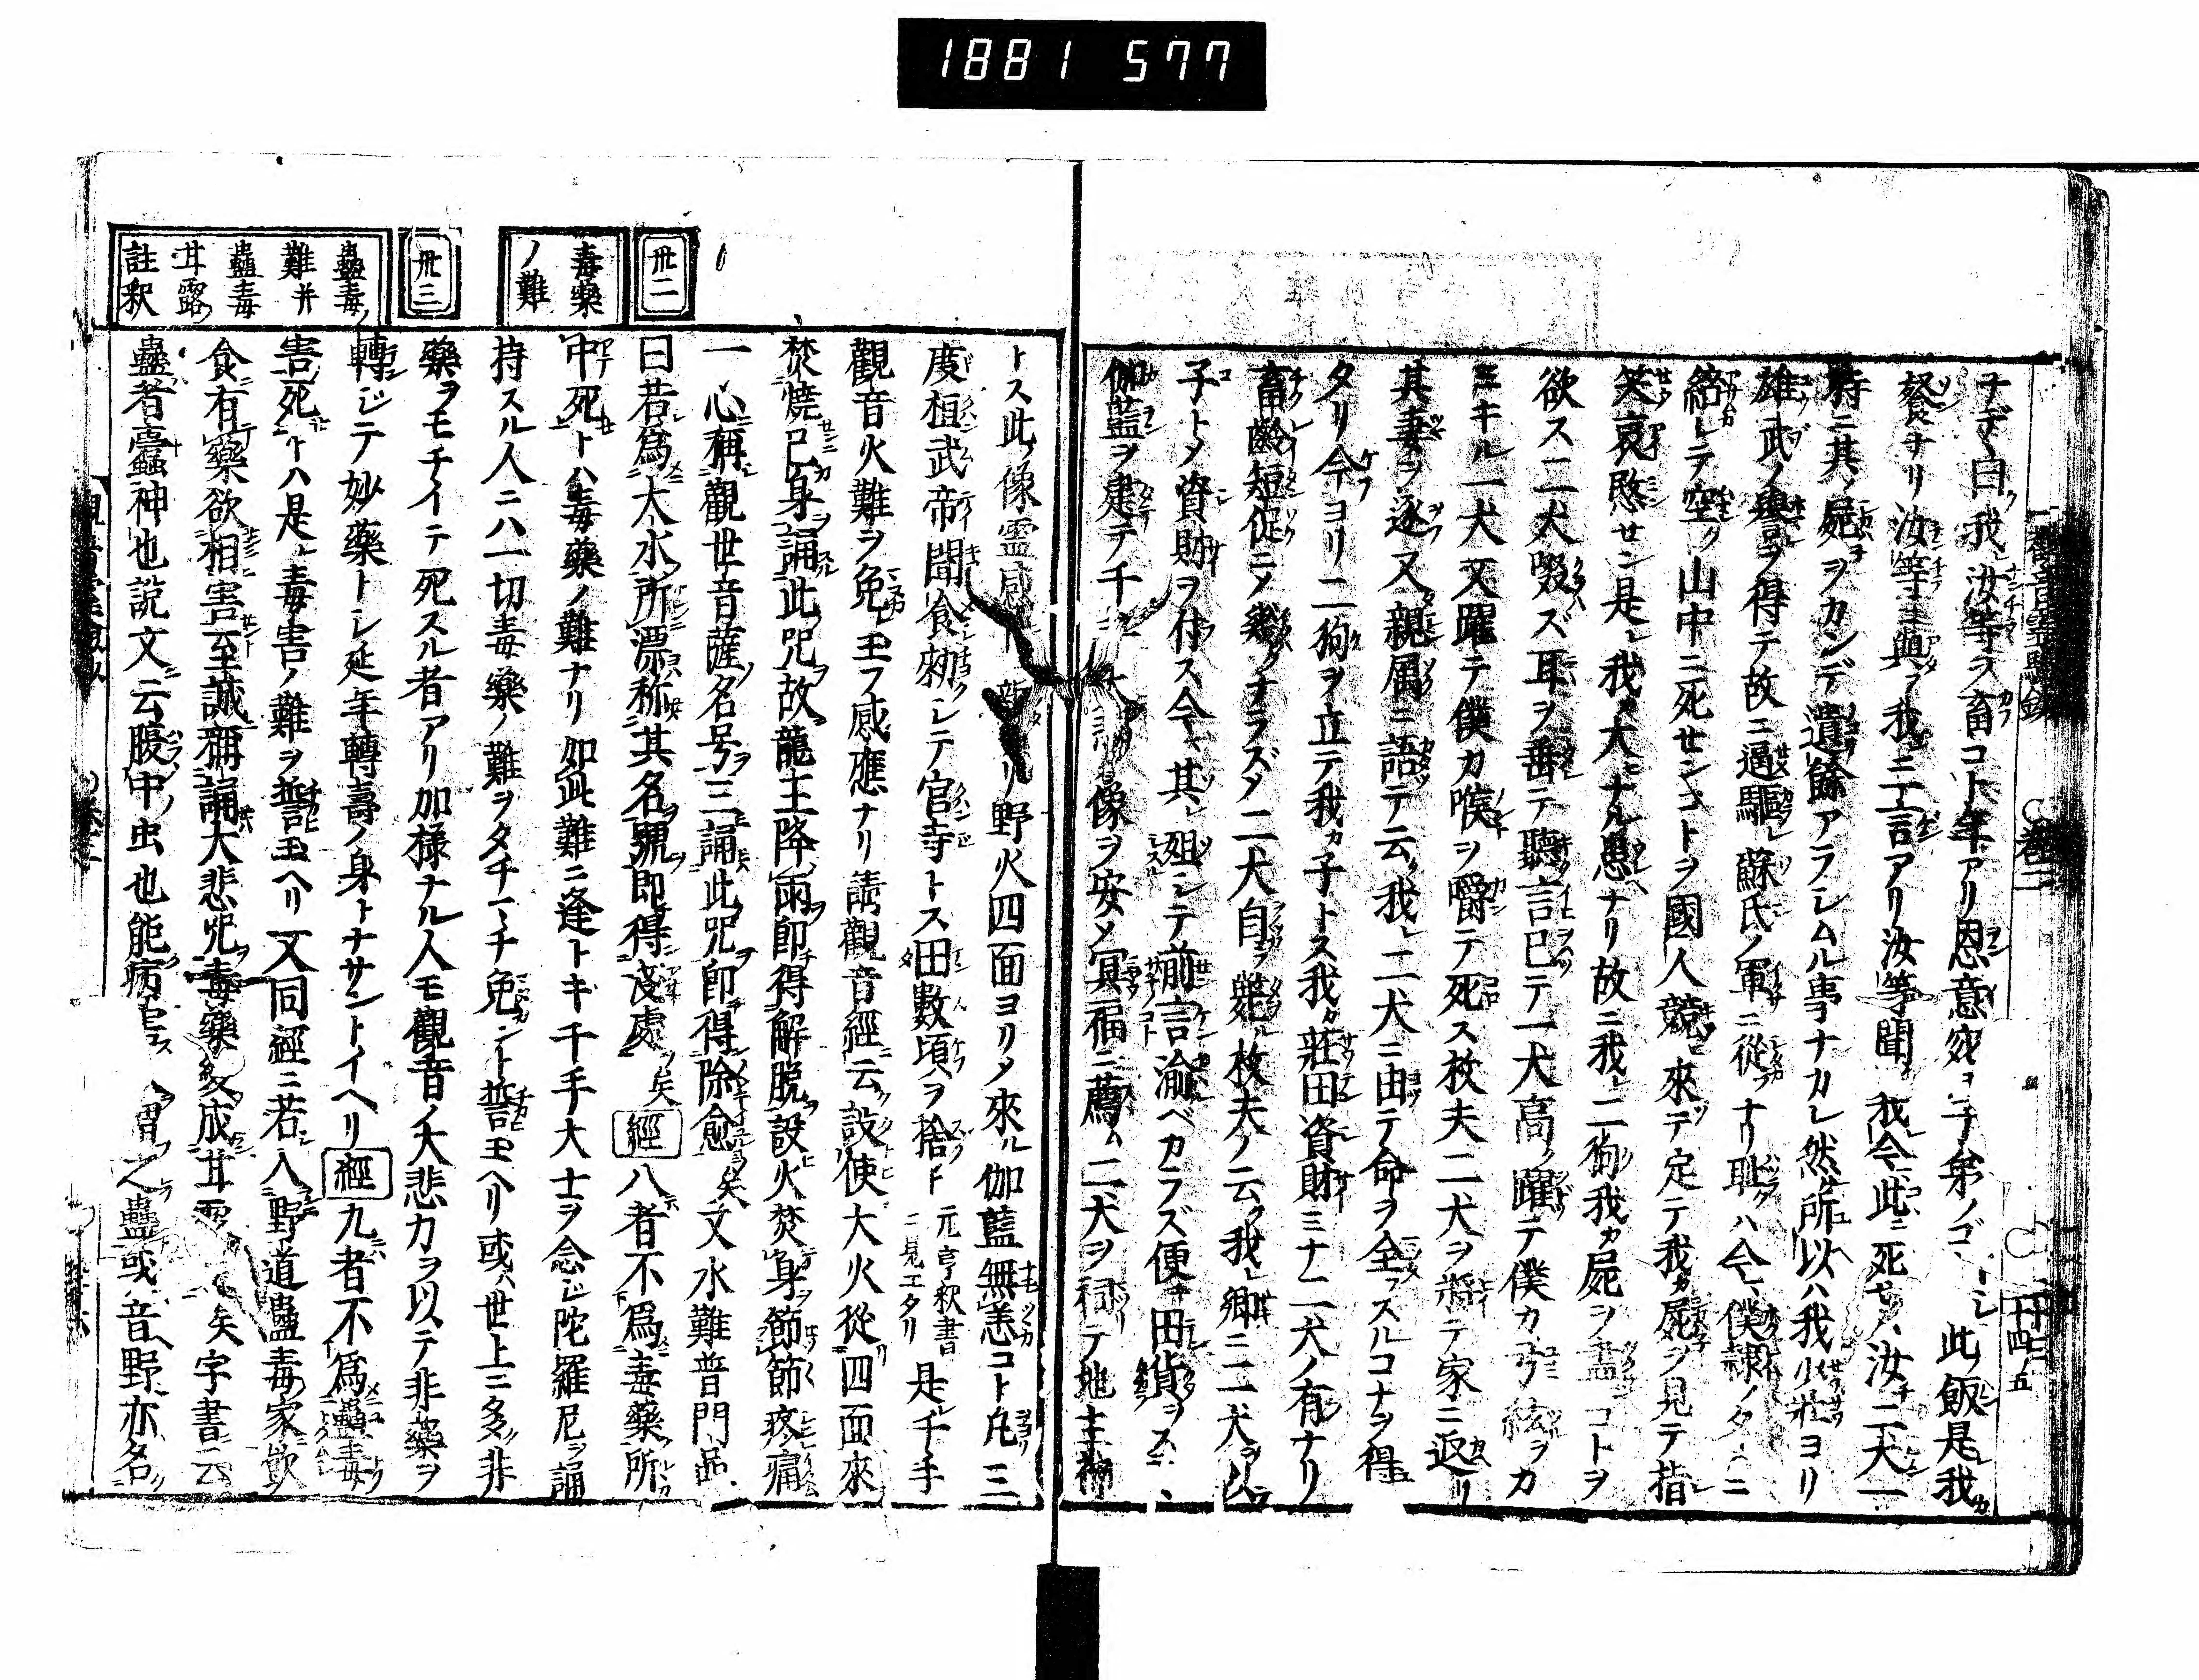 1881 577
ナデヽ曰我汝等ヲ畜コト年アリ恩意猶子弟ノゴ シ此飯是我カ
餐ナリ汝等ニ與フ我ニ一言アリ汝等聞我今此ニ死セハ汝チ二犬一
時ニ其ノ屍ヲカンデ遺餘アラシムル事ナカレ然所以ハ我少壯ヨリ
雄武ノ譽ヲ得テ故ニ逼驅シ蘇氏ノ軍ニ從フナリ耻クハ今僕隷ノタニ
給レテ空ク山中ニ死センコトヲ國人競來テ定テ我カ屍ヲ見テ指
笑哀愍セン是我大ナル愚ナリ故ニ我二狗我カ屍ヲ盡コトヲ
欲ス二犬啜ズ耳ヲ垂テ聽言已テ一犬高躍テ僕カ弓絃ヲカ
ミキル一犬又躍テ僕カ喉ヲ嚼テ死ス枚夫二犬ヲ將テ家ニ返リ
其妻ヲ逐フ又親屬ニ語テ云ク我二犬ニ由テ命ヲ全フスルコナヲ得
タリ今ヨリ二狗ヲ立テ我カ子トス我カ莊田資財ミナ二犬ノ有ナリ
畜齡短促ニメ幾クナラズメ二犬自斃ル枚夫ノ云ク我卿ニ二犬ヲ以
子トメ資財ヲ付ス今其レ殂シテ前言渝ベカラズ便チ田貨ヲス
伽藍ヲ建テ千 像ヲ安メ冥福ニ薦ム二犬ヲ祠テ地主神
トス此像霊感 リ野火四面ヨリメ來ル伽藍無恙コト凡三
度桓武帝聞食勅シテ官寺トス田數頃ヲ捨ト元亨釈書ニ見エタリ是千手
觀音火難ヲ免玉フ感應ナリ請觀音經云設使大火從四面來
焚燒已身誦此咒故龍王降雨即得解脱設火焚身節節疼痛
一心稱觀世音薩名号三誦此咒即得除愈矣又水難普門品
曰若爲大水所漂称其名號即得淺處矣經八者不爲毒藥所
中死トハ毒藥ノ難ナリ如此難ニ逢トキ千手大士ヲ念ジ陀羅尼ヲ誦
持スル人ニハ一切毒藥ノ難ヲタチマチ免ント誓玉ヘリ或世上ニ多非
藥ヲモチイテ死スル者アリ加様ナル人モ觀音ノ大悲力ヲ以テ非藥ヲ
轉ジテ妙藥トシ延年轉壽ノ身トナサントイヘリ經九者不爲蠱毒
害死トハ是毒害ノ難ヲ誓玉ヘリ又同經ニ若入野道蠱毒家飲
食有藥欲相害至誠稱誦大悲咒毒藥変成甘露 矣字書云
蠱者蠹神也説文云腹中ノ虫也能病 之蠱或音野亦名
卅二
毒藥
ノ難
卅三
蠱毒ノ
難并
蠱毒
甘露ノ
註釈